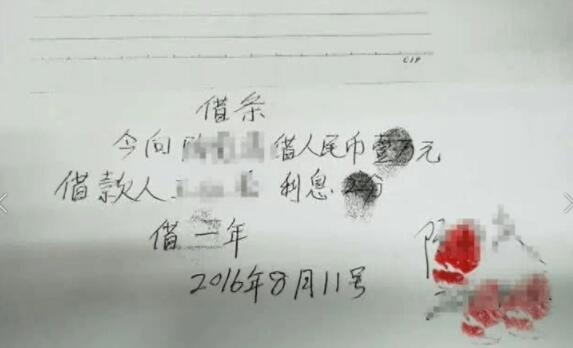 借条
今向 借人民币壹万元
借款人 利息 2分
借一年
2016年8月11号